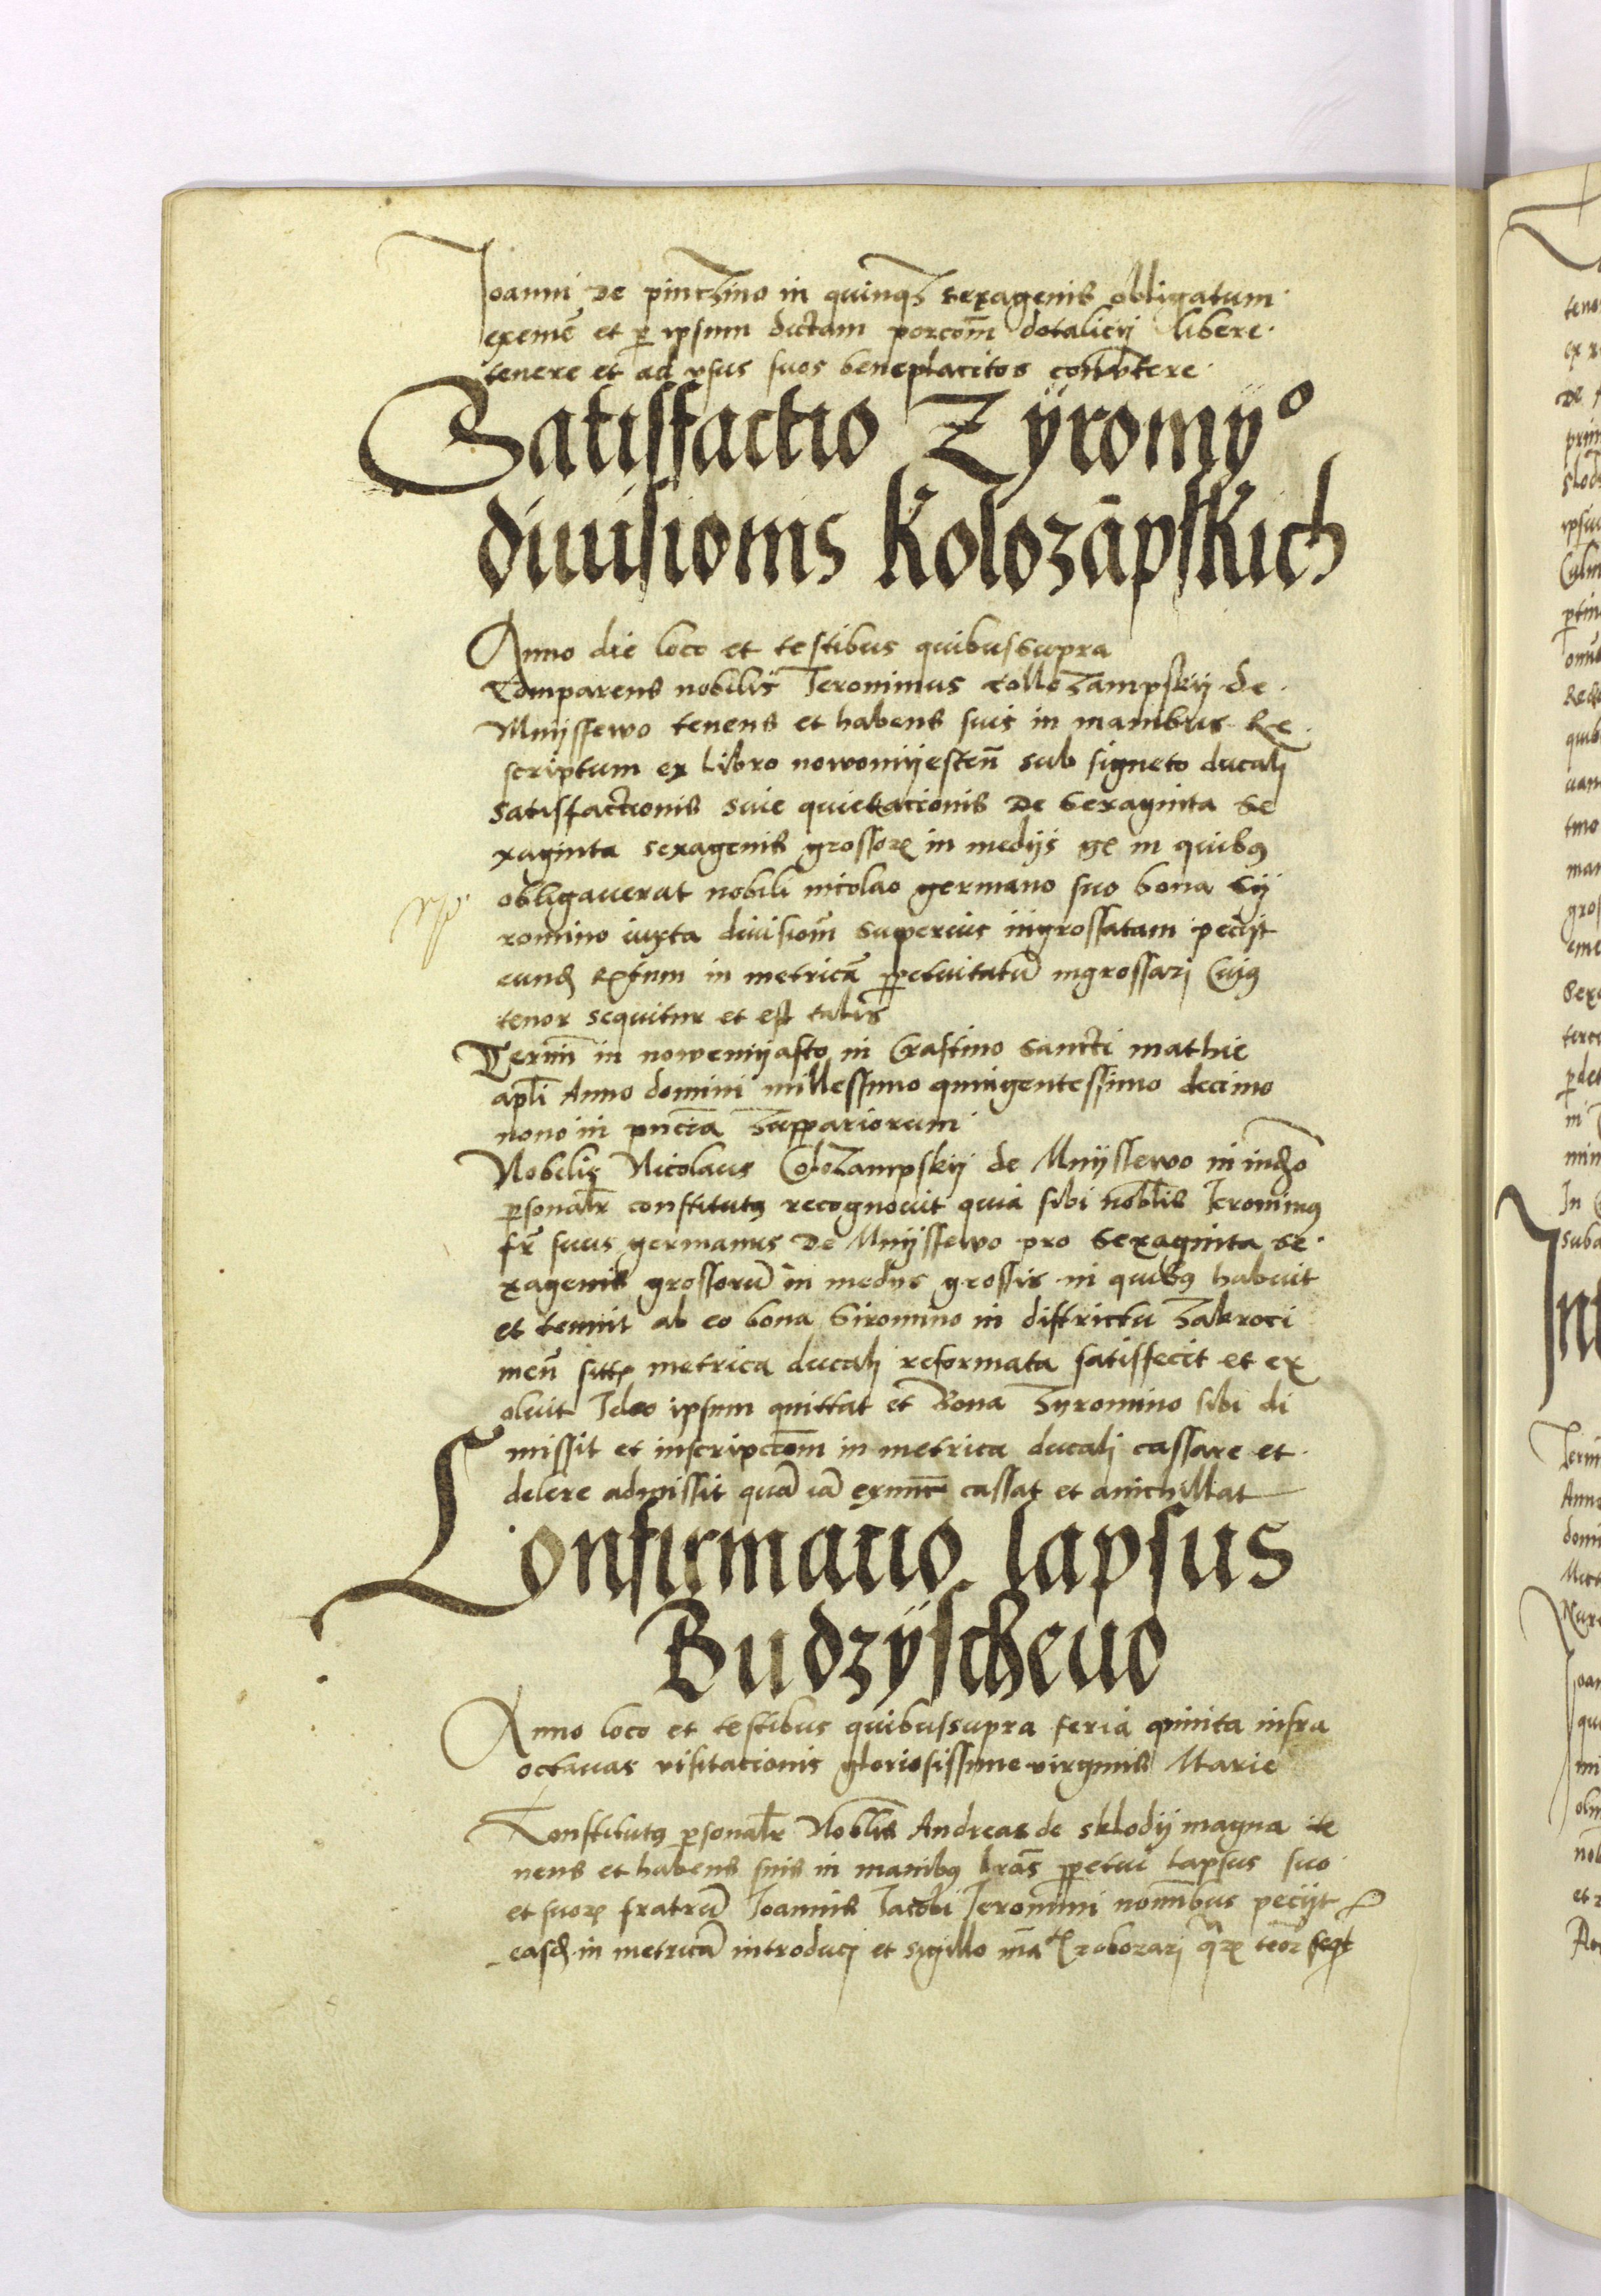 Joanni de pinczino in quinqz sexagenis obligatum
exemē et p̱ ipsum dictam porcōm dotalicij libere
tenere et ad vsus suos beneplacitos conutere
Satisffactio Zÿromÿº
diuisionis Kolozāpskich
Anno die loco et testibus quibussupra
Comparens nobilis Jeronimus collozampskij de
Mnijssewo tenens et habens suis in manibus Re
scriptum ex libro nowomijesteñ sub signeto ducalj
satisfactionis siue quietacionis de sexaginta se
xaginta sexagenis grossorꝝ in medijs gꝝ in quibꝯ
obligauerat nobili nicolao germano suo bona Sij
romino iuxta diuisiom̄ superius ingrossatam pecijt
eundꝫ Rꝑtum in metricā ꝑpetuitatū ingrossarj Cuiꝯ
tenor sequitur et est talis
Termī in nowemijasto in Crastino sancti mathie
apłi Anno domini millessimo quingentessimo decimo
nono in pn̄cia Suppariorum
Nobilis Nicolaus Colozampskij de Mnijssewo in iudꝫo
ꝑsonalr̄ constitutꝯ recognouit quia sibi nobłis Jeronimꝯ
fr̄ suus germanus de Mnijssewo pro sexaginta se
xagenis grossorū in medijs grossis in quibꝯ habuit
et tenuit ab eo bona Siromino in districtu Zakroci
meñ sittꝭ metrica ducalj reformata satisfecit et ex
oluit Ideo ipsum quittat et Bona Zyromino sibi di
missit et inscripccōm in metrica ducalj cassare et
delere admissit quā iā exnūc cassat et anichillat
Confirmacio lapsus
Budzÿscheuo
Anno loco et testibus quibussupra feria quinta infra
octauas visitacionis gloriosissime virginis Marie
Constitutꝯ ꝑsonalr̄ Nobłis Andreas de sklodij magna te
nens et habens suis in manibꝯ lr̄as ꝑpetui lapsus suo
et suorꝝ fratrū Joannis Jacobi Jeronimi nominibus pecijt
easdꝫ in metricā introducj et sigillo roborarj qꝝ teōr seqt̄